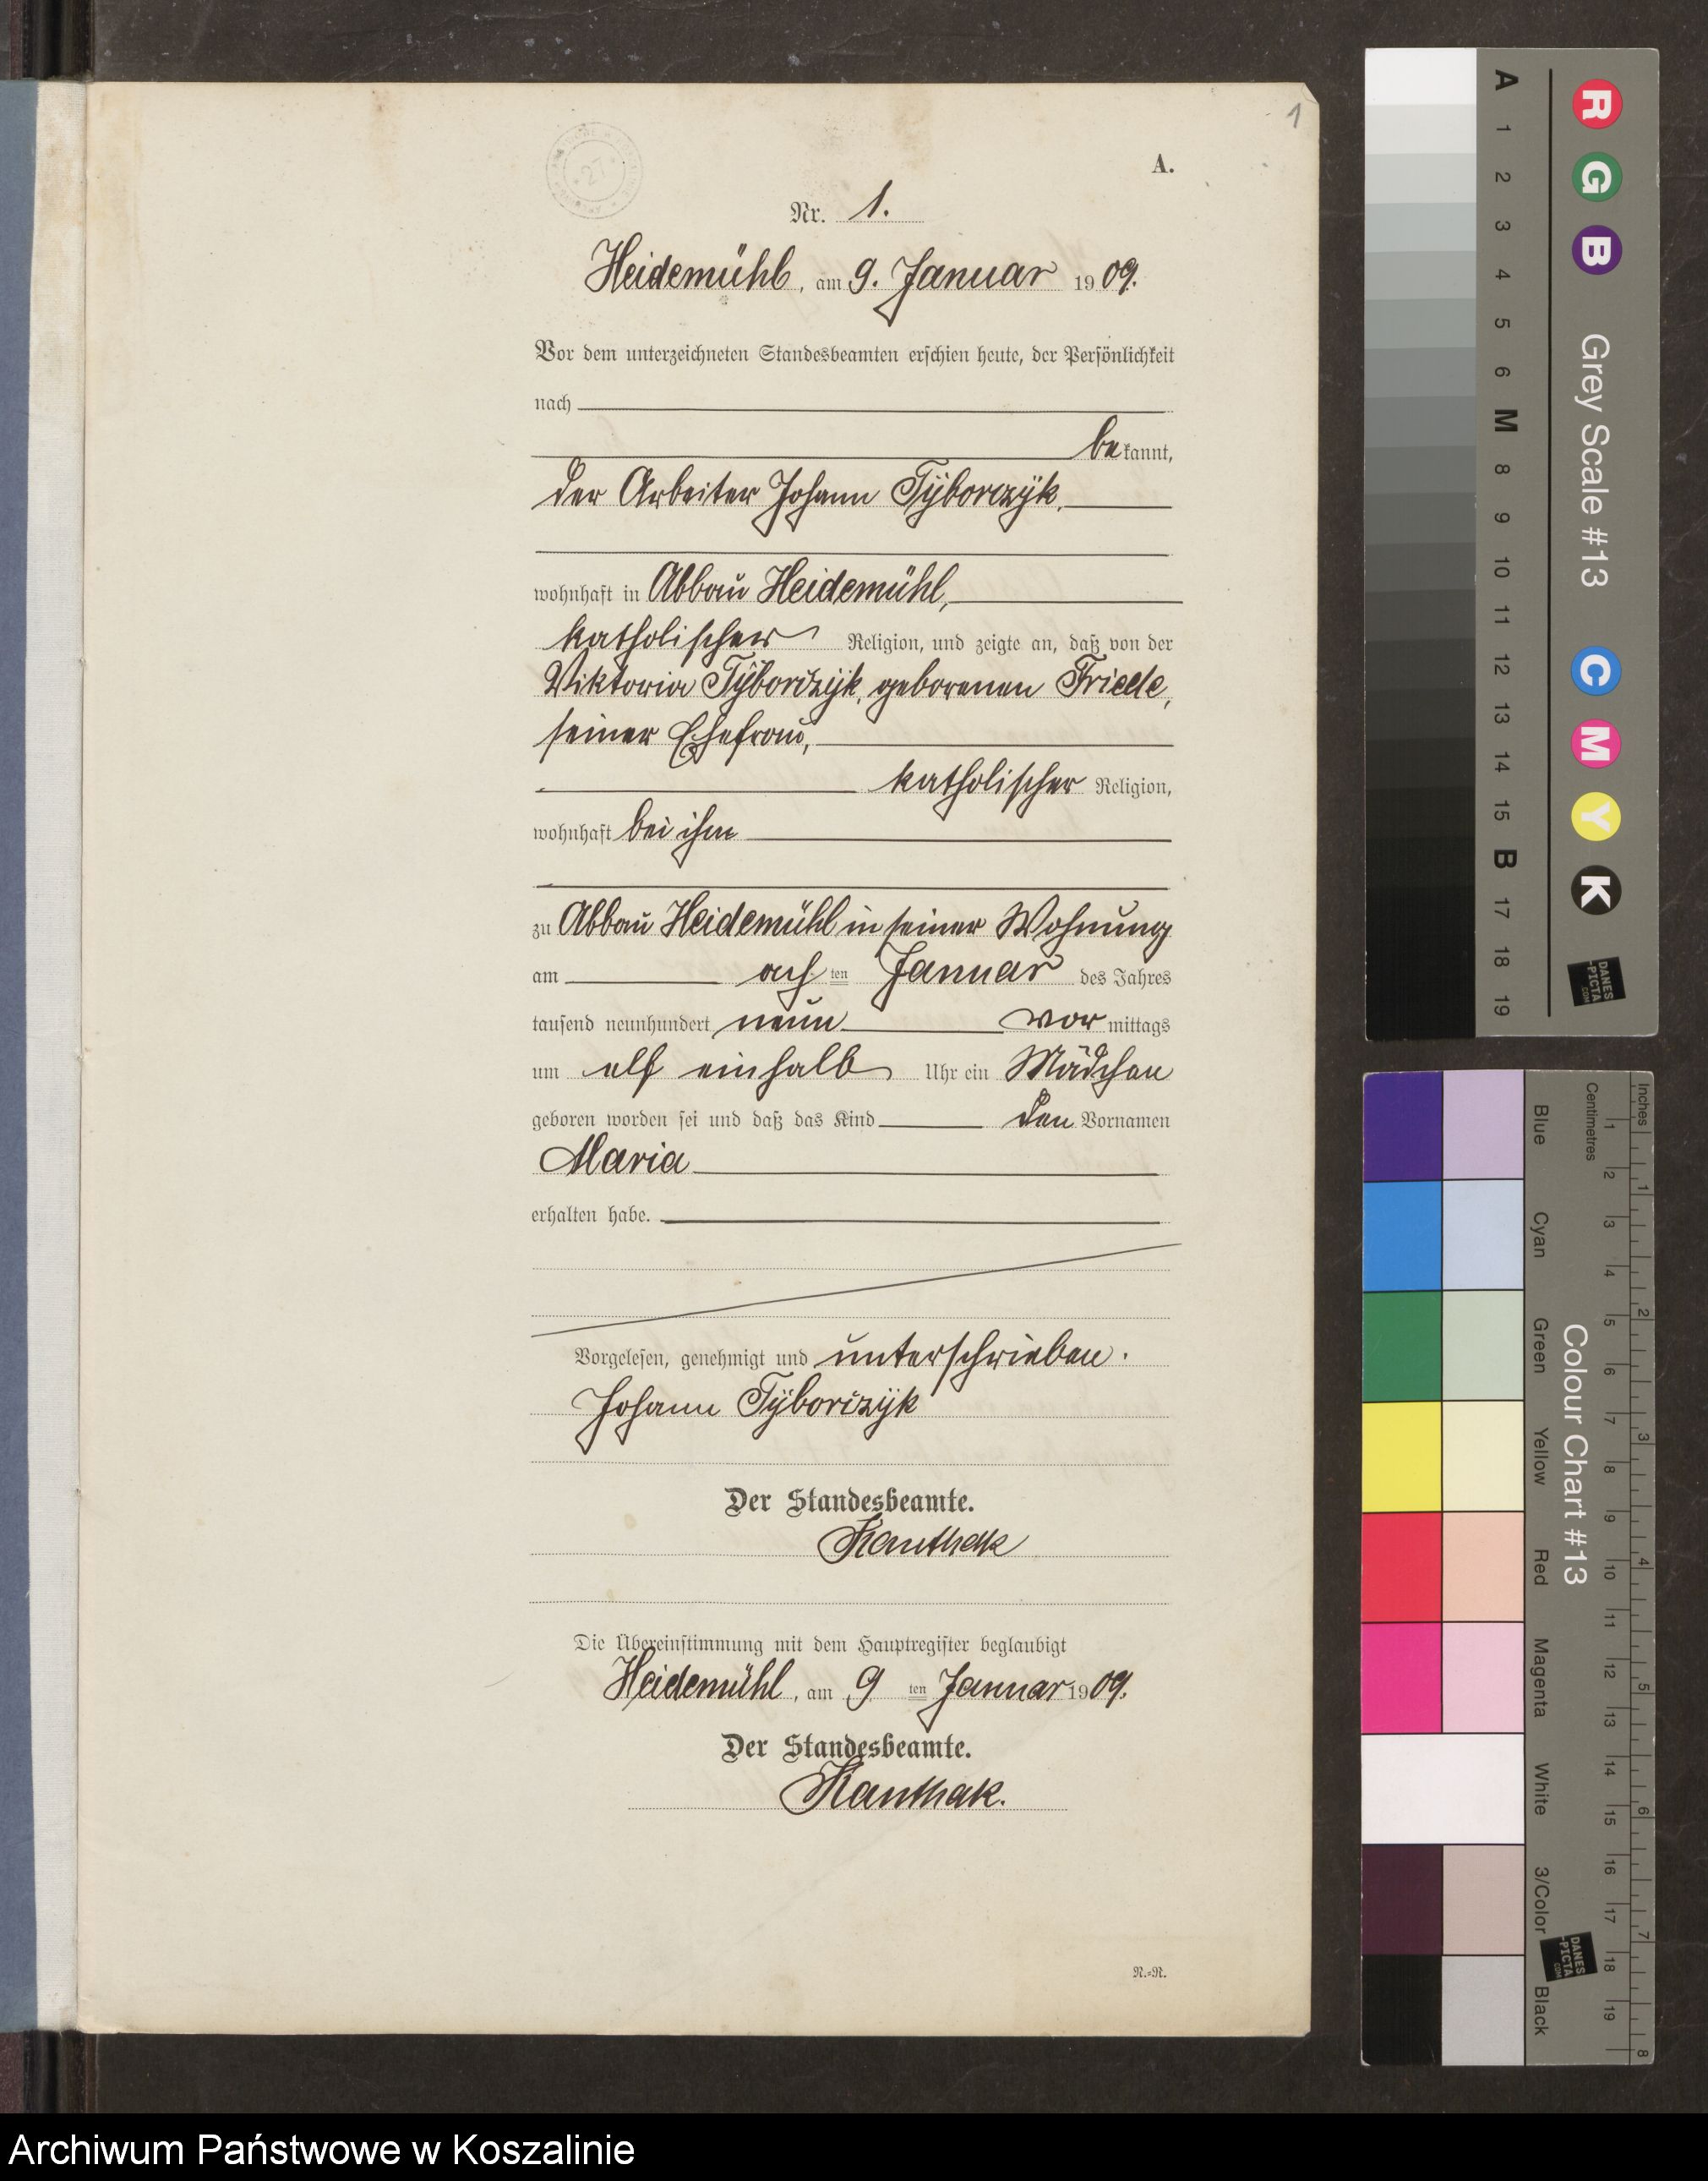 1
A.
Nr. 1.
Heidemühl, am 9. Januar 1909.
Vor dem unterzeichneten Standesbeamten erschien heute, der Persönlichkeit
nach
bekannt,
der Arbeiter Johann Tÿborczÿk,
wohnhaft in Abbau Heidemühl,
katholischer Religion, und zeigte an, daß von der
Viktoria Tÿborczÿk, geborenen Friede,
seiner Ehefrau,
katholischer Religion,
wohnhaft bei ihm
zu Abbau Heidemühl in seiner Wohnung
am achten Januar des Jahres
tausend neunhundert neun vormittags
um elf einhalb Uhr ein Mädchen
geboren worden sei und daß das Kind den Vornamen
Maria
erhalten habe.
Vorgelesen, genehmigt und unterschrieben.
Johann Tÿborczÿk
Der Standesbeamte.
Kanthak
Die Übereinstimmung mit dem Hauptregister beglaubigt
Heidemühl, am 9ten Januar 1909.
Der Standesbeamte.
Kanthak.
N.=N.
R G B
Grey Scale #13
C M Y K
A 1 2 3 4 5 6 M 8 9 10 11 12 13 14 15 B 17 18 19
DANES
-PICTA
.COM
Inches 1 2 3 4 5 6 7 8
Centimetres 1 2 3 4 5 6 7 8 9 10 11 12 13 14 15 16 17 18 19
Colour Chart #13
Blue Cyan Green Yellow Red Magenta White 3/Color Black
DANES
-PICTA
.COM
Archiwum Państwowe w Koszalinie